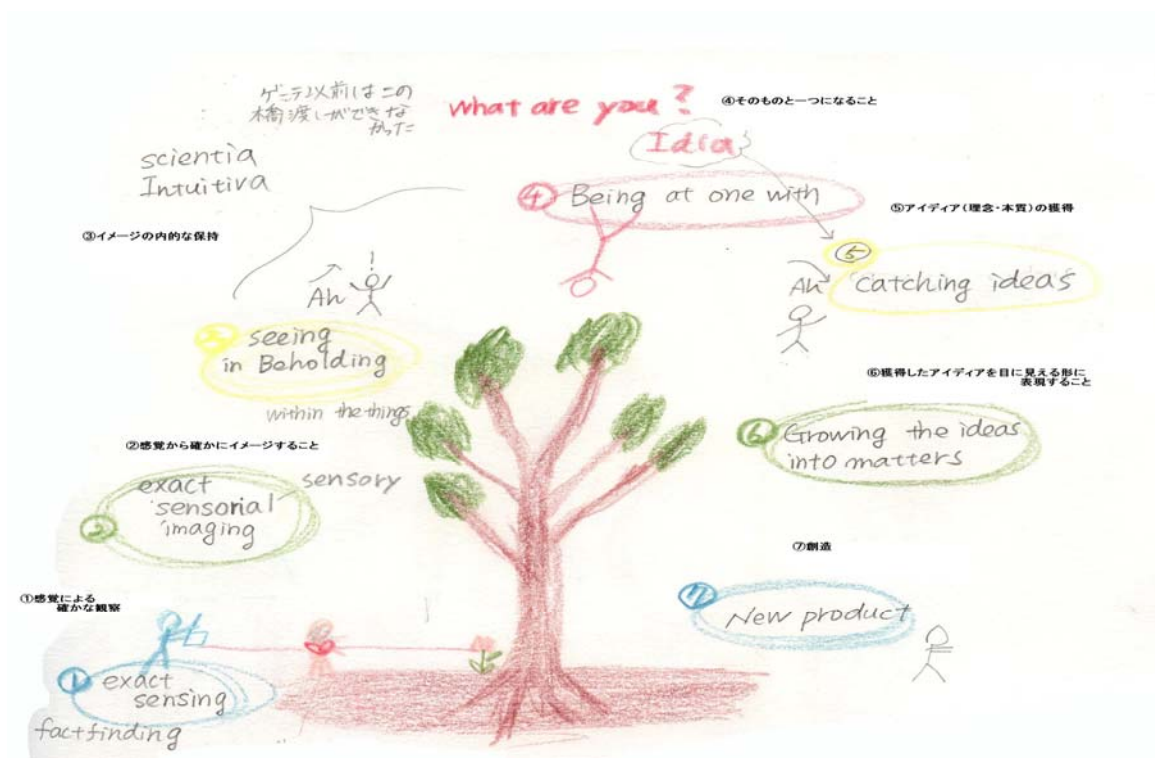 ゲーテ以前はこの
橋渡しができな
かった
what are you?
④そのものと一つになること
Idea
scientia
Intuitiva
④ Being at one with
⑤アイディア(理念・本質)の獲得
③イメージの内的な保持
⑤
Ah
catching ideas
Ah !
③ seeing
in Beholding
within the things
⑥獲得したアイディアを目に見える形に
表現すること
⑥ Growing the ideas
into matters
②感覚から確かにイメージすること
sensory
② exact
sensorial
imaging
⑦創造
①感覚による
確かな観察
⑦ New product
① exact
sensing
factfinding